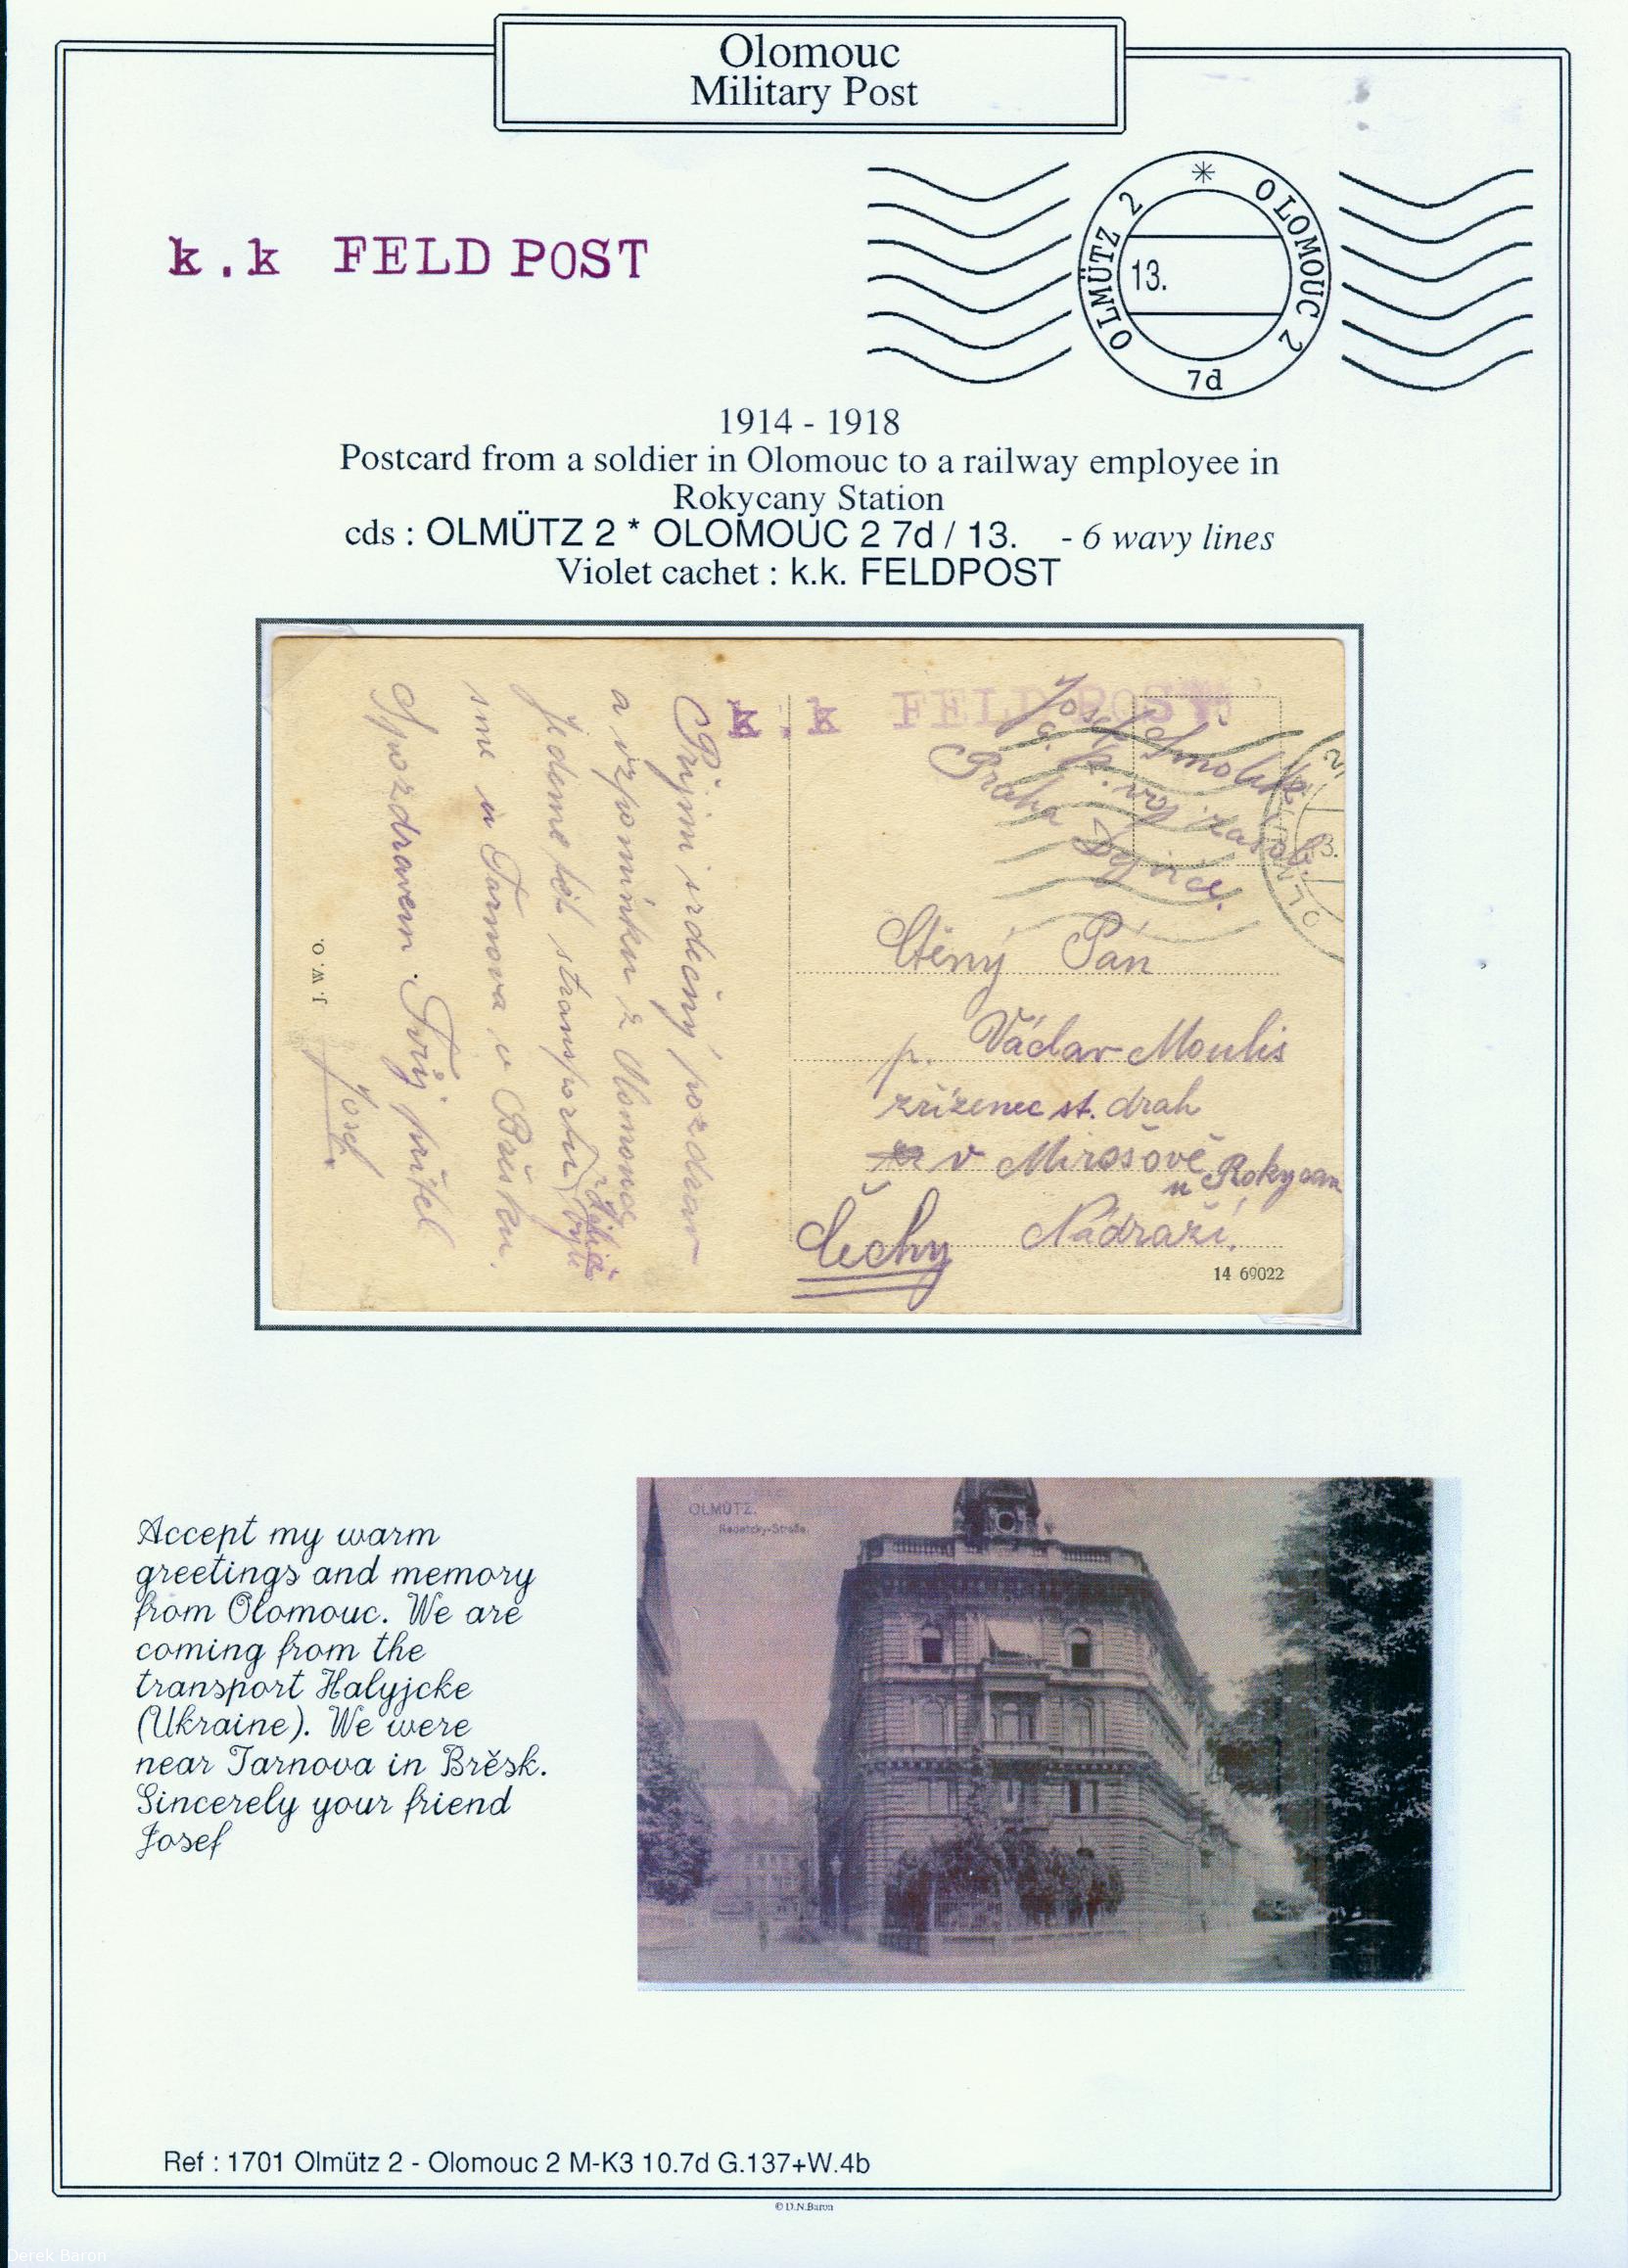 Olomouc
Military Post
k.k FELDPOST
OLMÜTZ 2 * OLOMOUC 2
13.
7d
1914 - 1918
Postcard from a soldier in Olomouc to a railway employee in
Rokycany Station
cds : OLMÜTZ 2 * OLOMOUC 2 7d / 13. - 6 wavy lines
Violet cachet : k.k. FELDPOST
k.k FELDPOST
Josef Smolak
c. k. voj. zasob.
Praha Dejvice.
Přijmi srdečný pozdrav
a vzpomínku z Olomouce
Jedeme též stransportu
byli
sme u Tarnova v Běsku.
Spozdravem Tvůj přítel
Josef
J. W. O.
Ctěný Pán
p. Václav Moulis
zřízenec st. drah
v Mirošově
u Rokycan
Nádraží.
Čechy
14 69022
Accept my warm
greetings and memory
from Olomouc. We are
coming from the
transport Halyjcke
(Ukraine). We were
near Tarnova in Brěsk.
Sincerely your friend
Josef
OLMÜTZ.
Radetzky-Straße.
Ref : 1701 Olmütz 2 - Olomouc 2 M-K3 10.7d G.137+W.4b
© D.N.Baron
Derek Baron